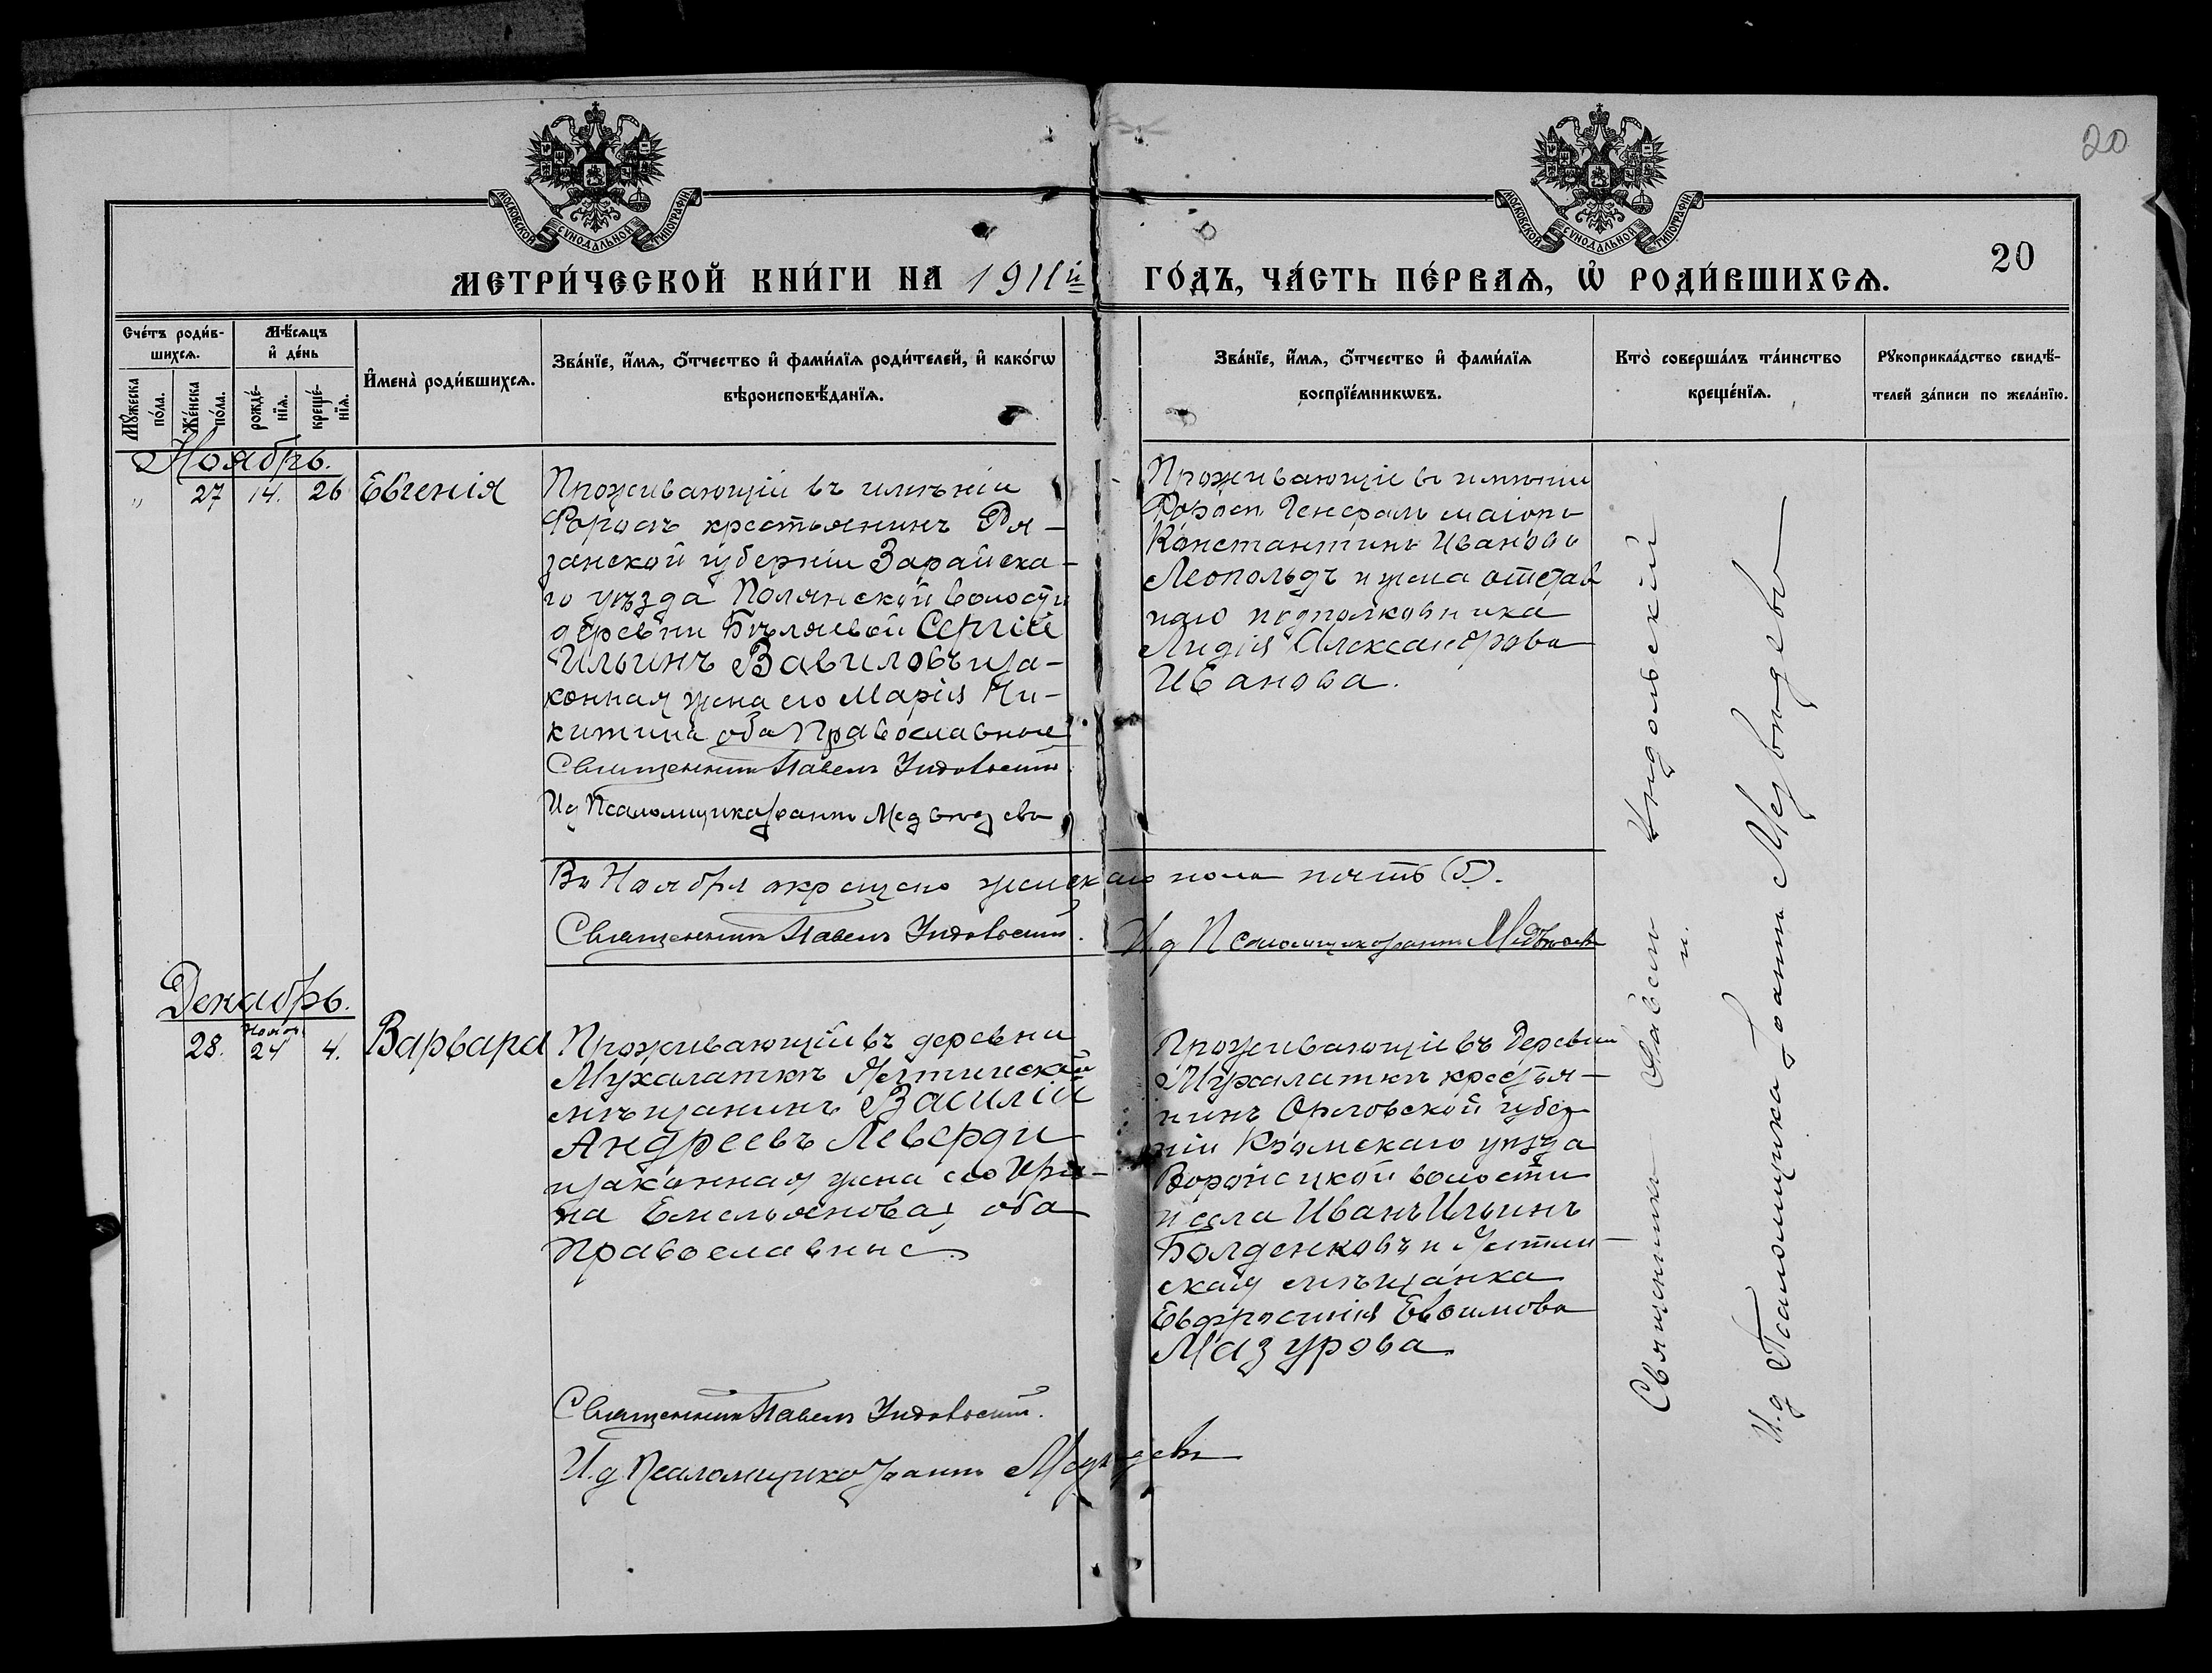 20
МОСКОВСКОЙ СУНОДАЛЬНОЙ ТИПОГРАФІИ
МОСКОВСКОЙ СУНОДАЛЬНОЙ ТИПОГРАФІИ
20
МЕТРИ́ЧЕСКОЙ КНИ́ГИ НА 1911й ГО́ДЪ, ЧА́СТЬ ПЕ́РВАѦ, Ѡ҆ РОДИ́ВШИХСѦ.
Сче́тъ роди́в-
шихсѧ.
Мѣ́сѧцъ
и҆ де́нь
Мꙋ́жеска
по́ла.
Же́нска
по́ла.
рожде́-
нїѧ.
креще́-
нїѧ.
И҆мена̀ роди́вшихсѧ.
Зва́нїе, и҆́мѧ, ѻ҆́тчество и҆ фами́лїѧ роди́телей, и҆ како́гѡ
вѣроисповѣ́данїѧ.
Зва́нїе, и҆́мѧ, ѻ҆́тчество и҆ фами́лїѧ
воспрїе́мникѡвъ.
Кто̀ соверша́лъ та́инство
креще́нїѧ.
Рꙋкоприкла́дство свидѣ́-
телей за́писи по жела́нїю.
Ноябрь.
" 27 14. 26 Евгенія
Проживающій въ имѣніи
Форосъ крестьянинъ Ря-
занской губерніи Зарайска-
го уѣзда Полянской волости
деревни Бѣляевой Сергій
Ильинъ Вавиловъ и за-
конная жена его Марія Ни-
китина оба Православные
Священникъ Павелъ Индольскій.
И д Псаломщика Іоаннъ Медвѣдевъ
Проживающіе въ имѣніи
Форосъ Генералъ маіоръ
Константинъ Ивановъ
Леопольдъ и жена отстав
наго подполковника
Лидія Александрова
Иванова.
Въ Ноябрѣ окрещено женскаго пола пять (5).
Священникъ Павелъ Индольскій. И.д Псаломщика Іоаннъ Медвѣдевъ
Декабрь.
28. Нояб. 24 4. Варвара
Проживающій въ деревни
Мухалаткѣ Ялтинскій
мѣщанинъ Василій
Андреевъ Леверди
и законная жена его Ири-
на Емельянова, оба
Православные.
Священникъ Павелъ Индольскій.
И.д Псаломщика Іоаннъ Медвѣдевъ
Проживающіе въ Деревни
Мухалаткѣ крестья-
нинъ Орловской губер
ніи Кромскаго уѣзда
волости
и села Иванъ Ильинъ
Болденковъ и Ялтин-
ская мѣщанка
Евфросинія Евѳимова
Мазурова
Священникъ Павелъ Индольскій.
и.
И.д Псаломщика Іоаннъ Медвѣдевъ